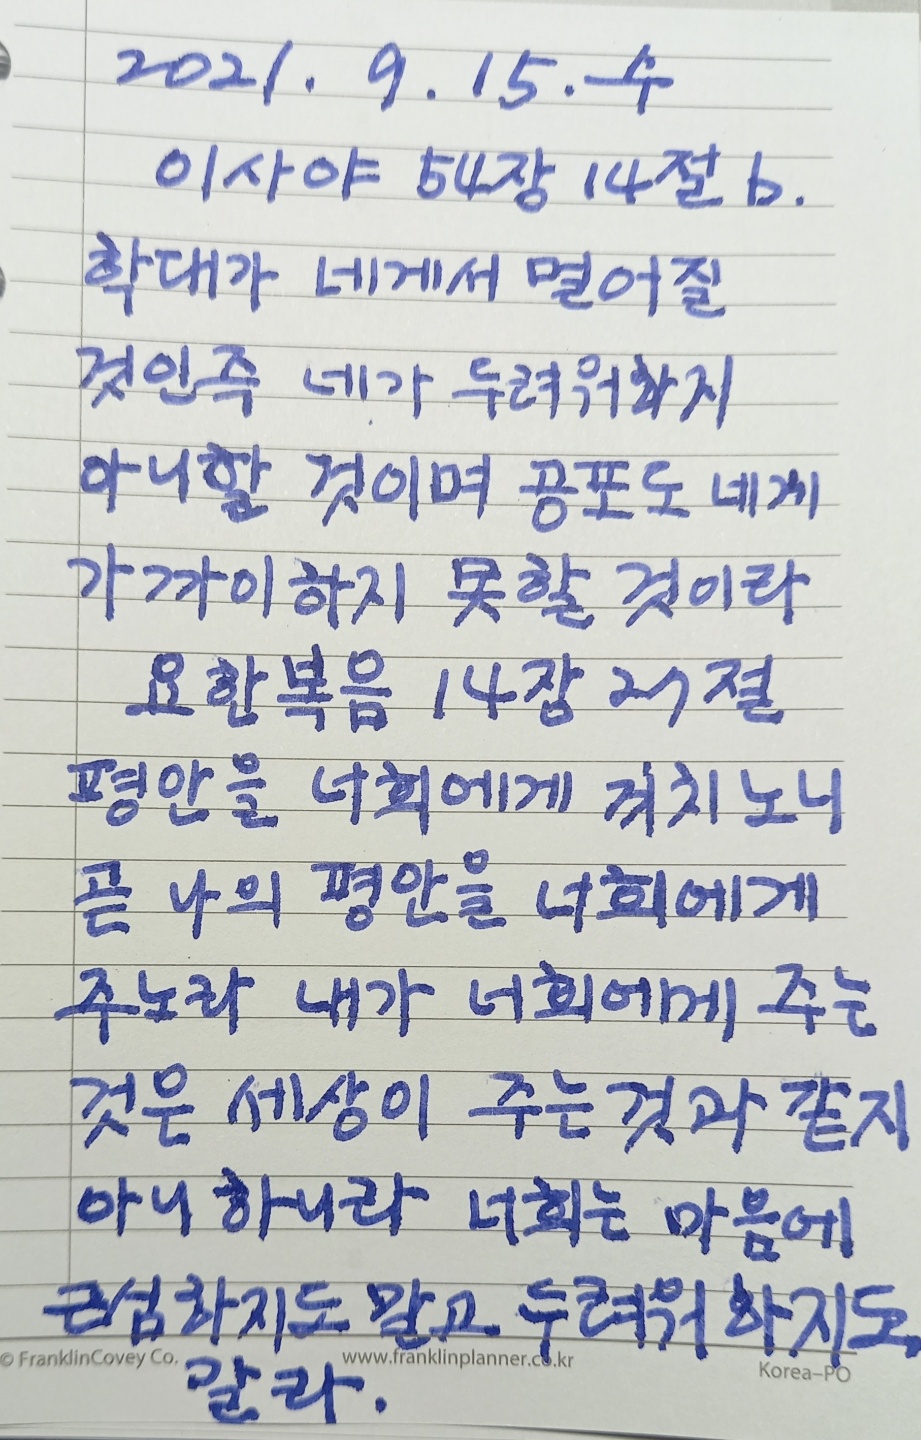 2021. 9. 15. 수
이사야 54장 14절 b.
학대가 네게서 멀어질
것인즉 네가 두려워하지
아니할 것이며 공포도 네게
가까이하지 못할 것이라
요한복음 14장 27절
평안을 너희에게 끼치노니
곧 나의 평안을 너희에게
주노라 내가 너희에게 주는
것은 세상이 주는것과 같지
아니하니라 너희는 마음에
근심하지도 말고 두려워하지도
말라.
© FranklinCovey Co. www.franklinplanner.co.kr Korea-PO